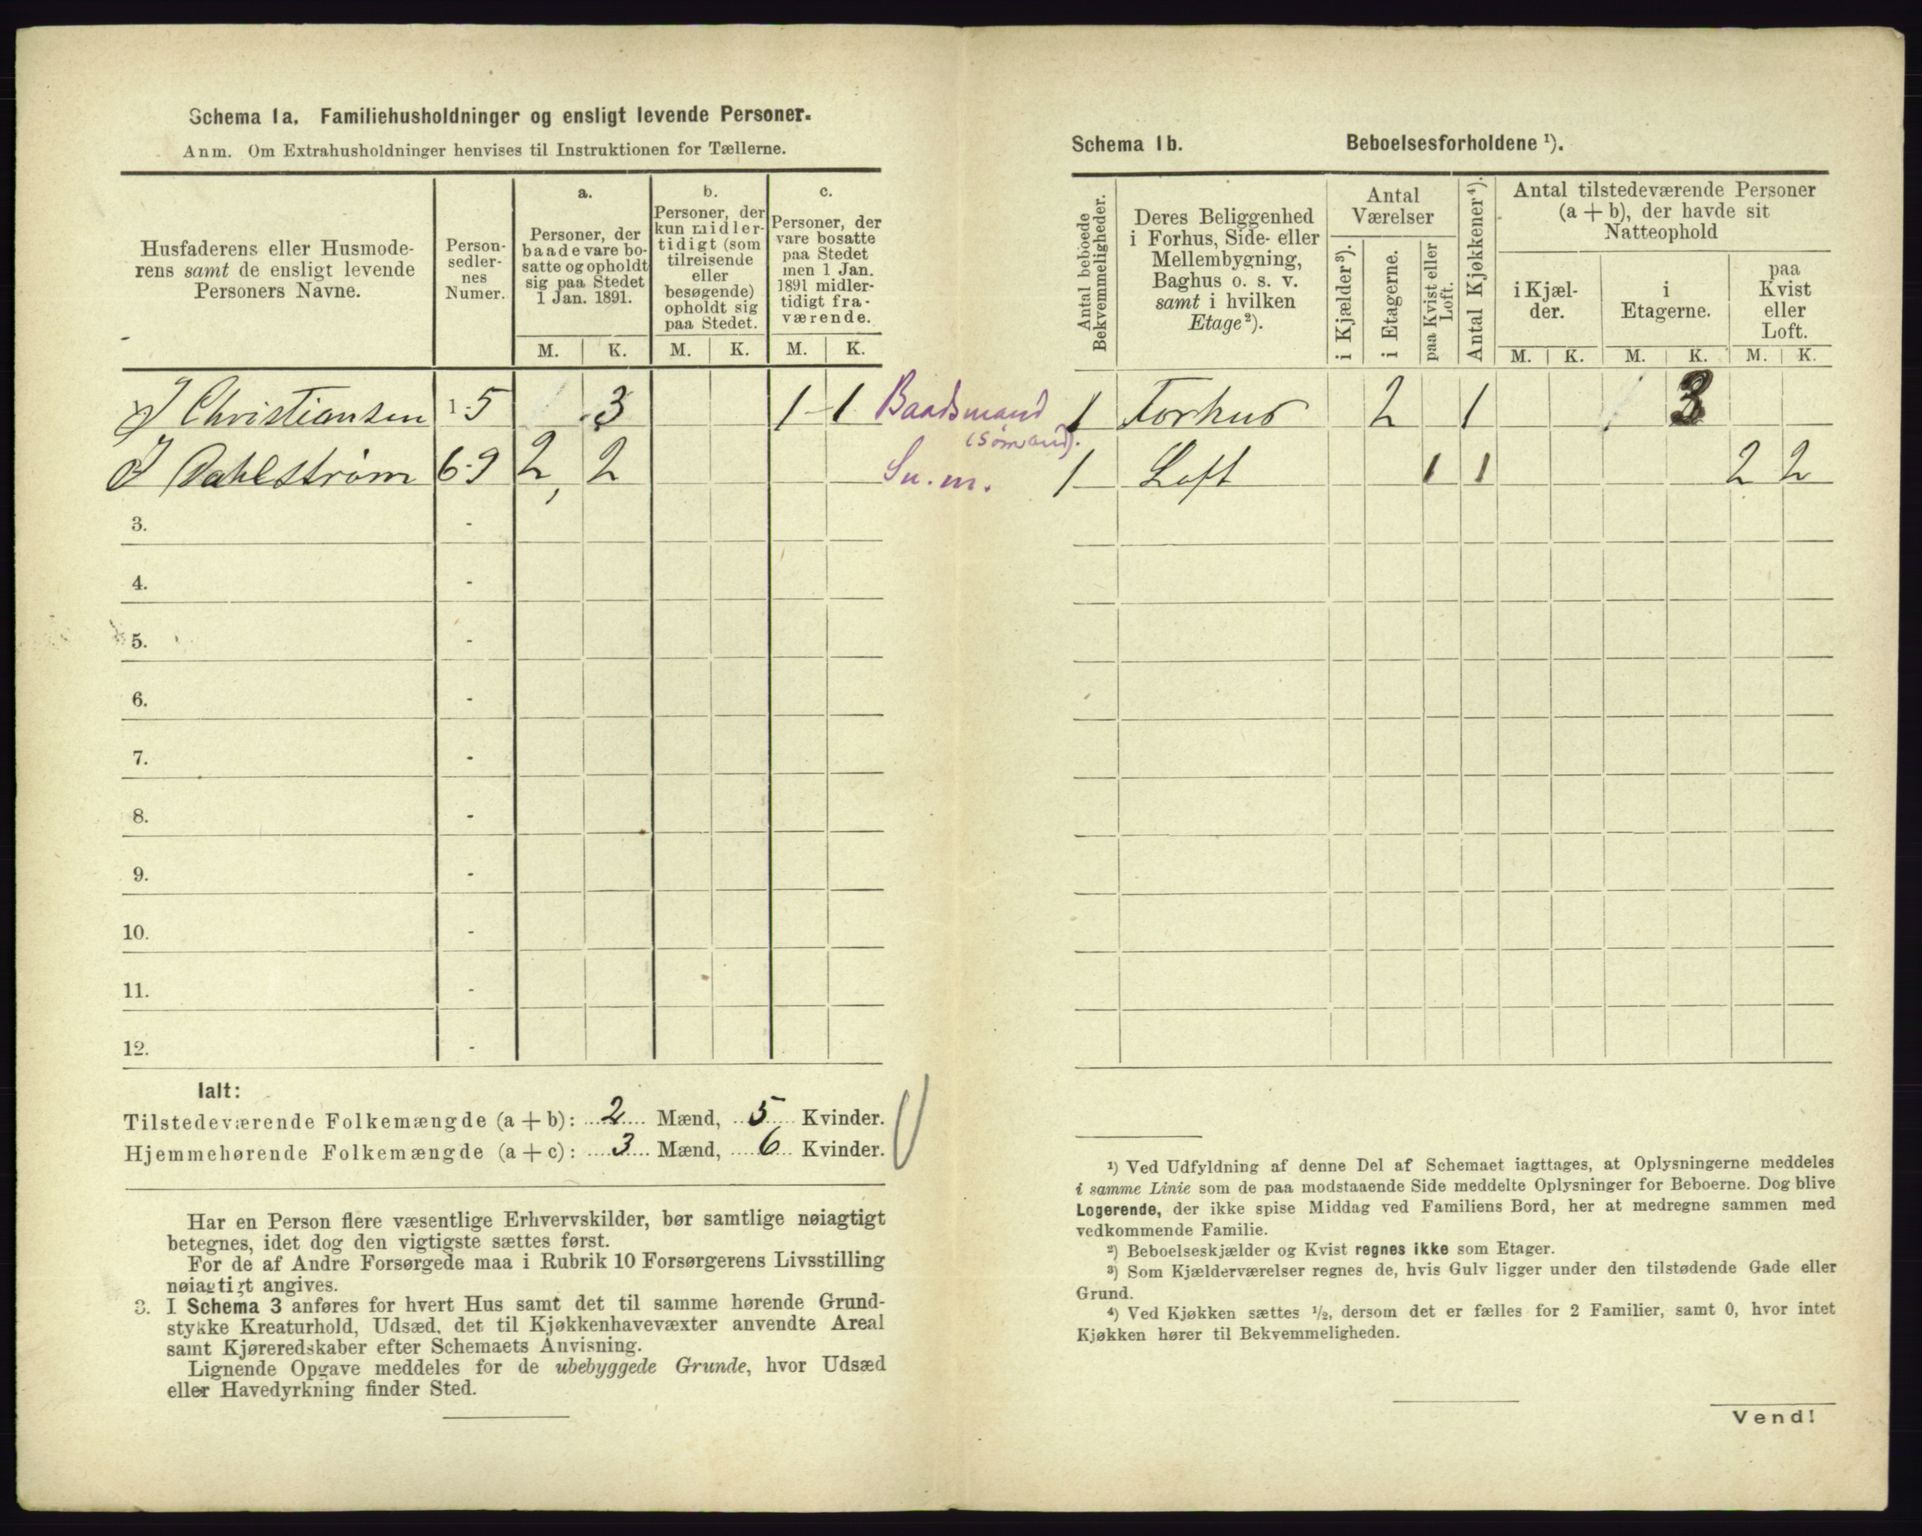 Schema 1a. Familiehusholdninger og ensligt levende Personer.
Anm. Om Extrahusholdninger henvises til Instruktionen for Tællerne.
Husfaderens eller Husmode-
rens samt de ensligt levende
Personers Navne.
Person-
sedler-
nes
Numer.
a.
Personer, der
baade vare bo-
satte og opholdt
sig paa Stedet
1 Jan. 1891.
b.
Personer, der
kun midler-
tidigt (som
tilreisende
eller
besøgende)
opholdt sig
paa Stedet.
c.
Personer, der
vare bosatte
paa Stedet
men 1 Jan.
1891 midler-
tidigt fra-
værende.
M. K. M. K. M. K.
J Christiansen 1-5 3 1 1 Baadsmand
(Sømand).
J Dahlstrøm 6-9 2 2 Su. m.
3. -
4. -
5. -
6. -
7. -
8. -
9. -
10. -
11. -
12. -
Ialt:
Tilstedeværende Folkemængde (a + b): 2 Mænd, 5 Kvinder.
Hjemmehørende Folkemængde (a + c): 3 Mænd, 6 Kvinder.
Har en Person flere væsentlige Erhvervskilder, bør samtlige nøiagtigt
betegnes, idet dog den vigtigste sættes først.
For de af Andre Forsørgede maa i Rubrik 10 Forsørgerens Livsstilling
nøiagtigt angives.
3. I Schema 3 anføres for hvert Hus samt det til samme hørende Grund-
stykke Kreaturhold, Udsæd, det til Kjøkkenhavevæxter anvendte Areal
samt Kjøreredskaber efter Schemaets Anvisning.
Lignende Opgave meddeles for de ubebyggede Grunde, hvor Udsæd
eller Havedyrkning finder Sted.
Schema 1b. Beboelsesforholdene ¹).
Antal beboede
Bekvemmeligheder.
Deres Beliggenhed
i Forhus, Side- eller
Mellembygning,
Baghus o. s. v.
samt i hvilken
Etage²).
Antal
Værelser
i Kjælder³).
i Etagerne.
paa Kvist eller
Loft.
Antal Kjøkkener⁴).
Antal tilstedeværende Personer
(a + b), der havde sit
Natteophold
i Kjæl-
der.
i
Etagerne.
paa
Kvist
eller
Loft.
M. K. M. K. M. K.
1 Forhus 2 1 3
1 Loft 1 1 2 2
¹) Ved Udfyldning af denne Del af Schemaet iagttages, at Oplysningerne meddeles
i samme Linie som de paa modstaaende Side meddelte Oplysninger for Beboerne. Dog blive
Logerende, der ikke spise Middag ved Familiens Bord, her at medregne sammen med
vedkommende Familie.
²) Beboelseskjælder og Kvist regnes ikke som Etager.
³) Som Kjælderværelser regnes de, hvis Gulv ligger under den tilstødende Gade eller
Grund.
⁴) Ved Kjøkken sættes ½, dersom det er fælles for 2 Familier, samt 0, hvor intet
Kjøkken hører til Bekvemmeligheden.
Vend!